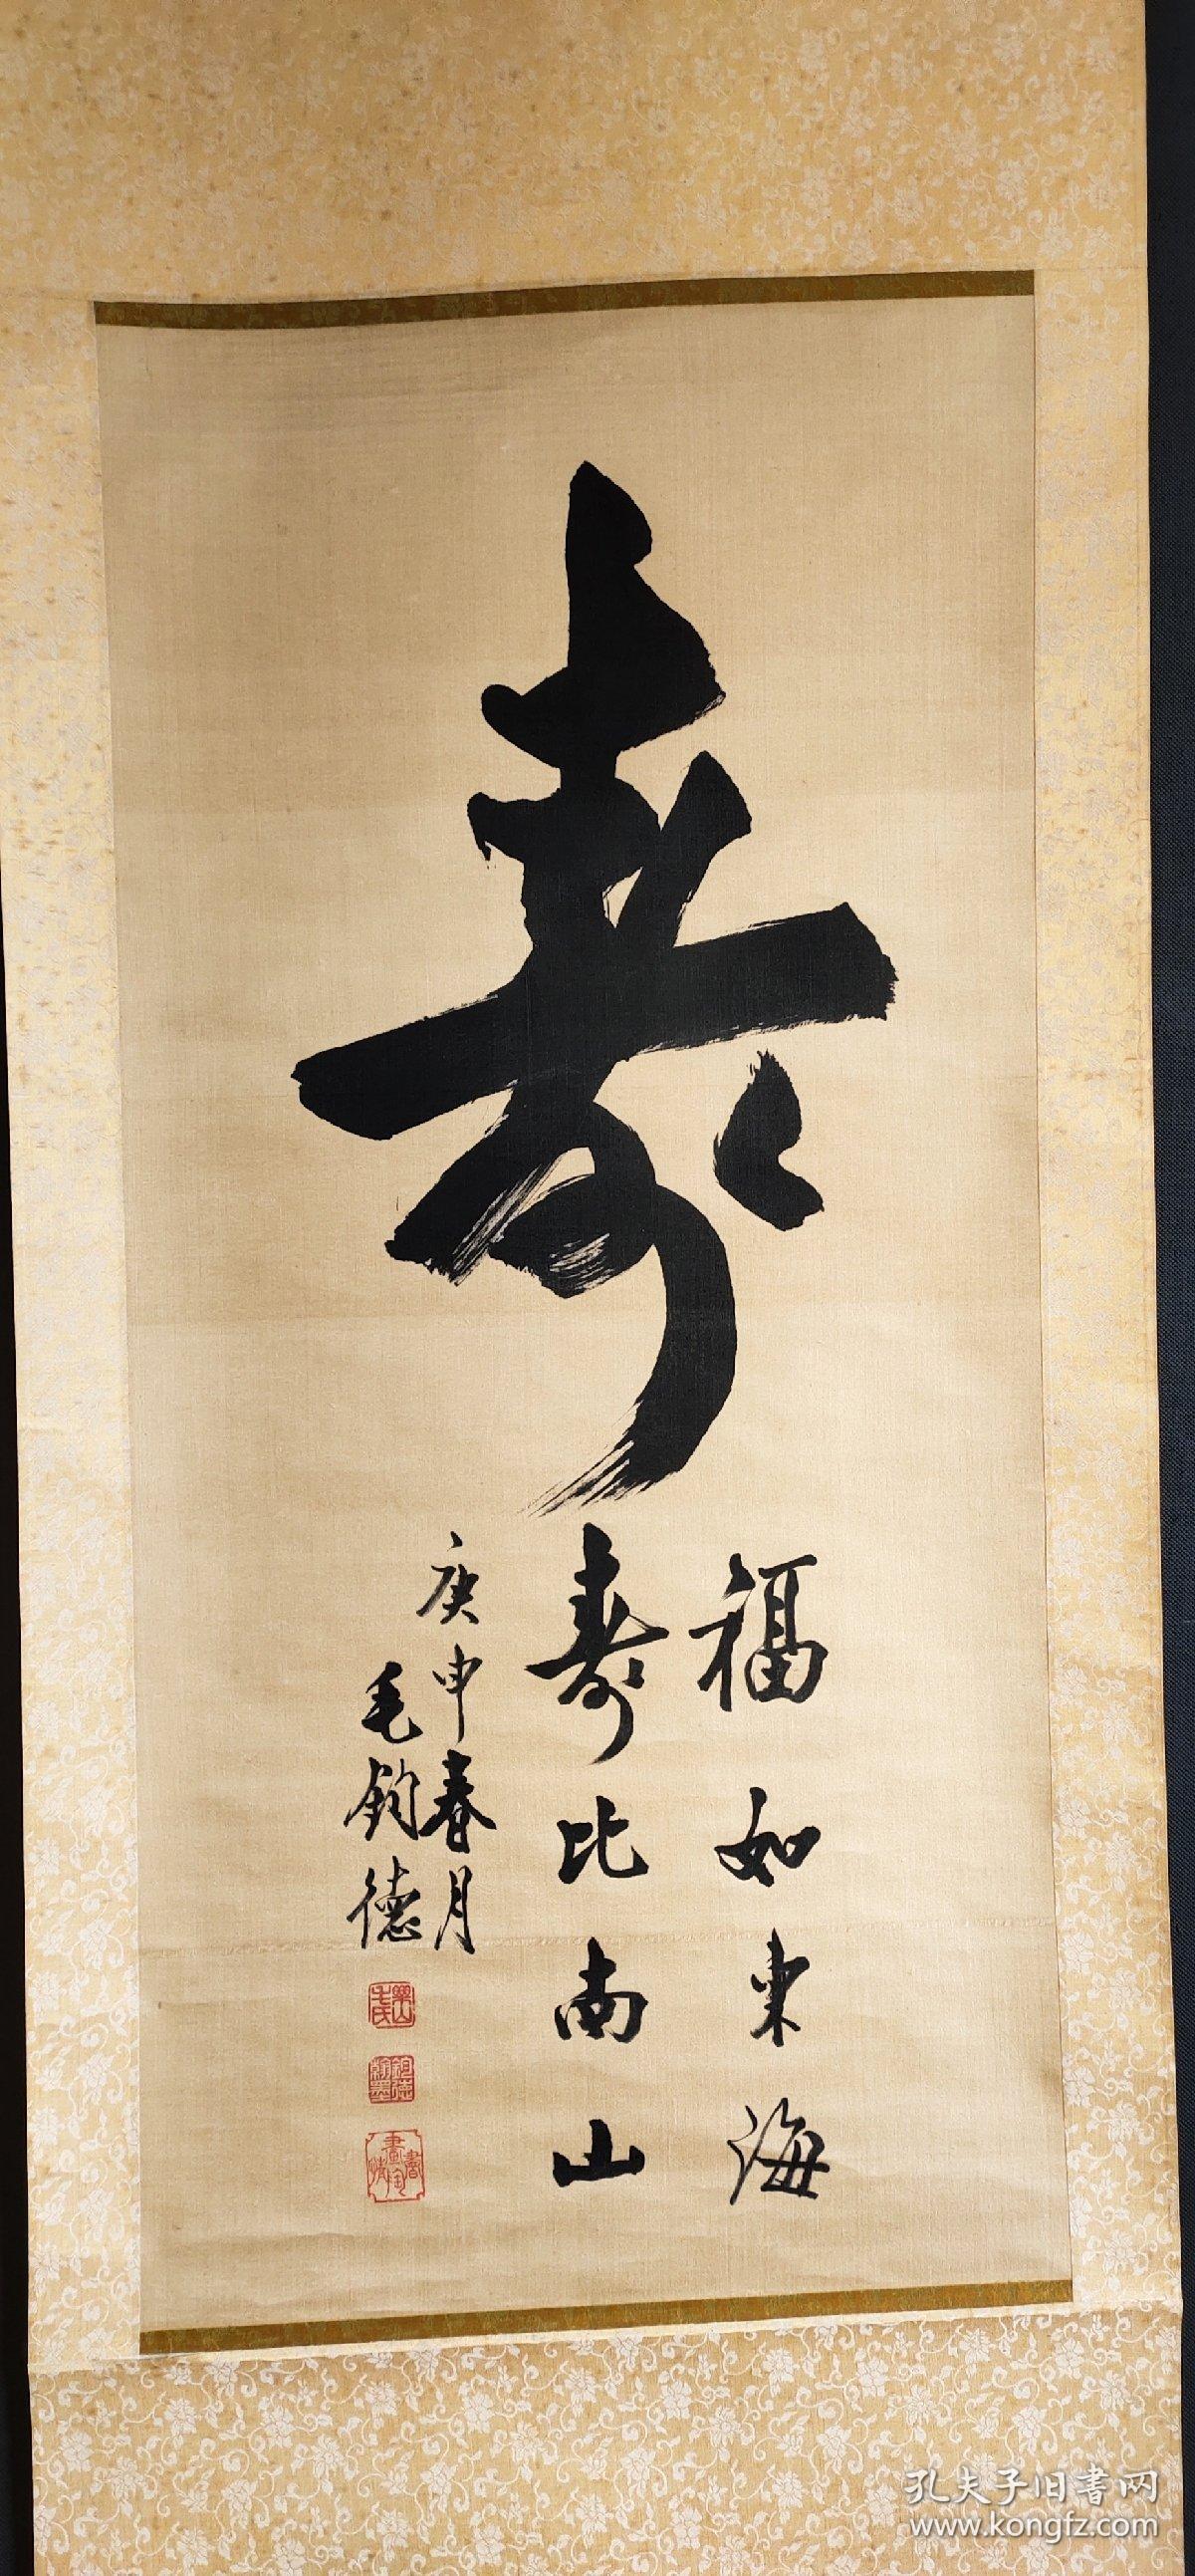 壽
福如東海
壽比南山
庚申春月
毛鈞德
孔夫子旧書网
www.kongfz.com